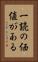 一読の価
値がある